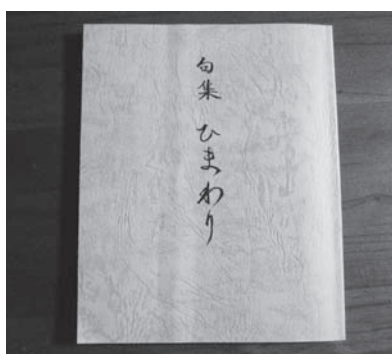 句集 ひまわり